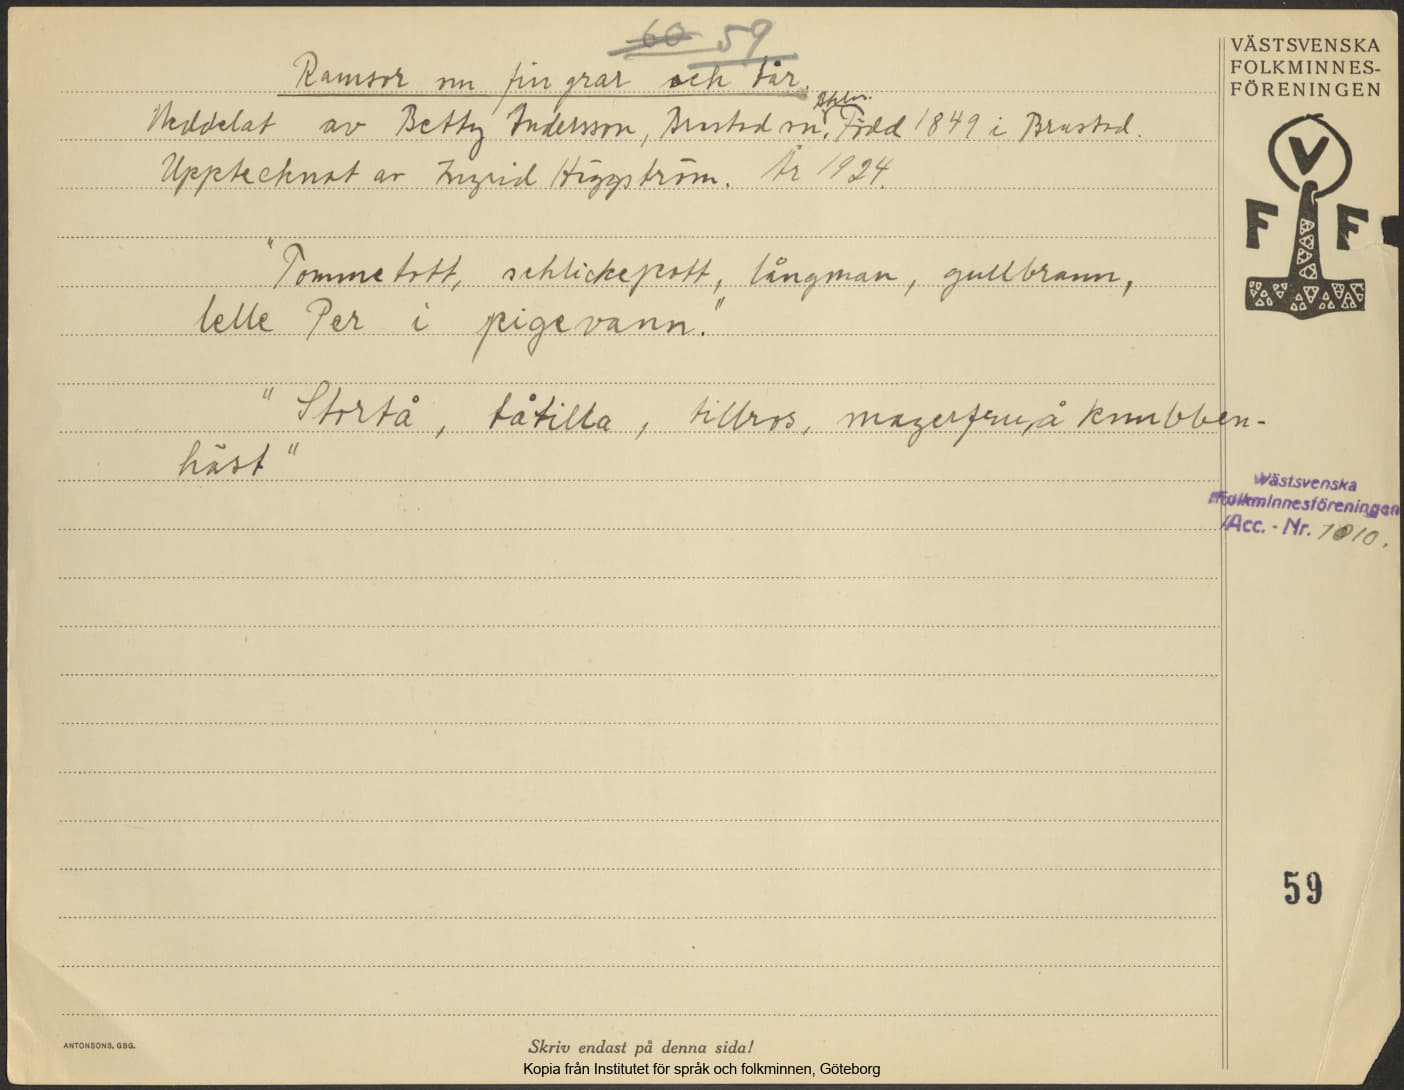 60 59
VÄSTSVENSKA
FOLKMINNES-
FÖRENINGEN
Ramsor om fingrar och tår.
Meddelat av Betty Andersson, Brastad sn, Bhln. Född 1849 i Brastad.
Upptecknat av Ingrid Häggström. År 1924.
V
F F
"Tommetott, schlickepott, långman, gullbrann,
lelle Per i pigevann."
"Stortå, tåtilla, tillros, magerfru, å knubben-
häst"
Västsvenska
Folkminnesföreningen
Acc. - Nr. 1010.
59
ANTONSONS, GBG.
Skriv endast på denna sida!
Kopia från Institutet för språk och folkminnen, Göteborg